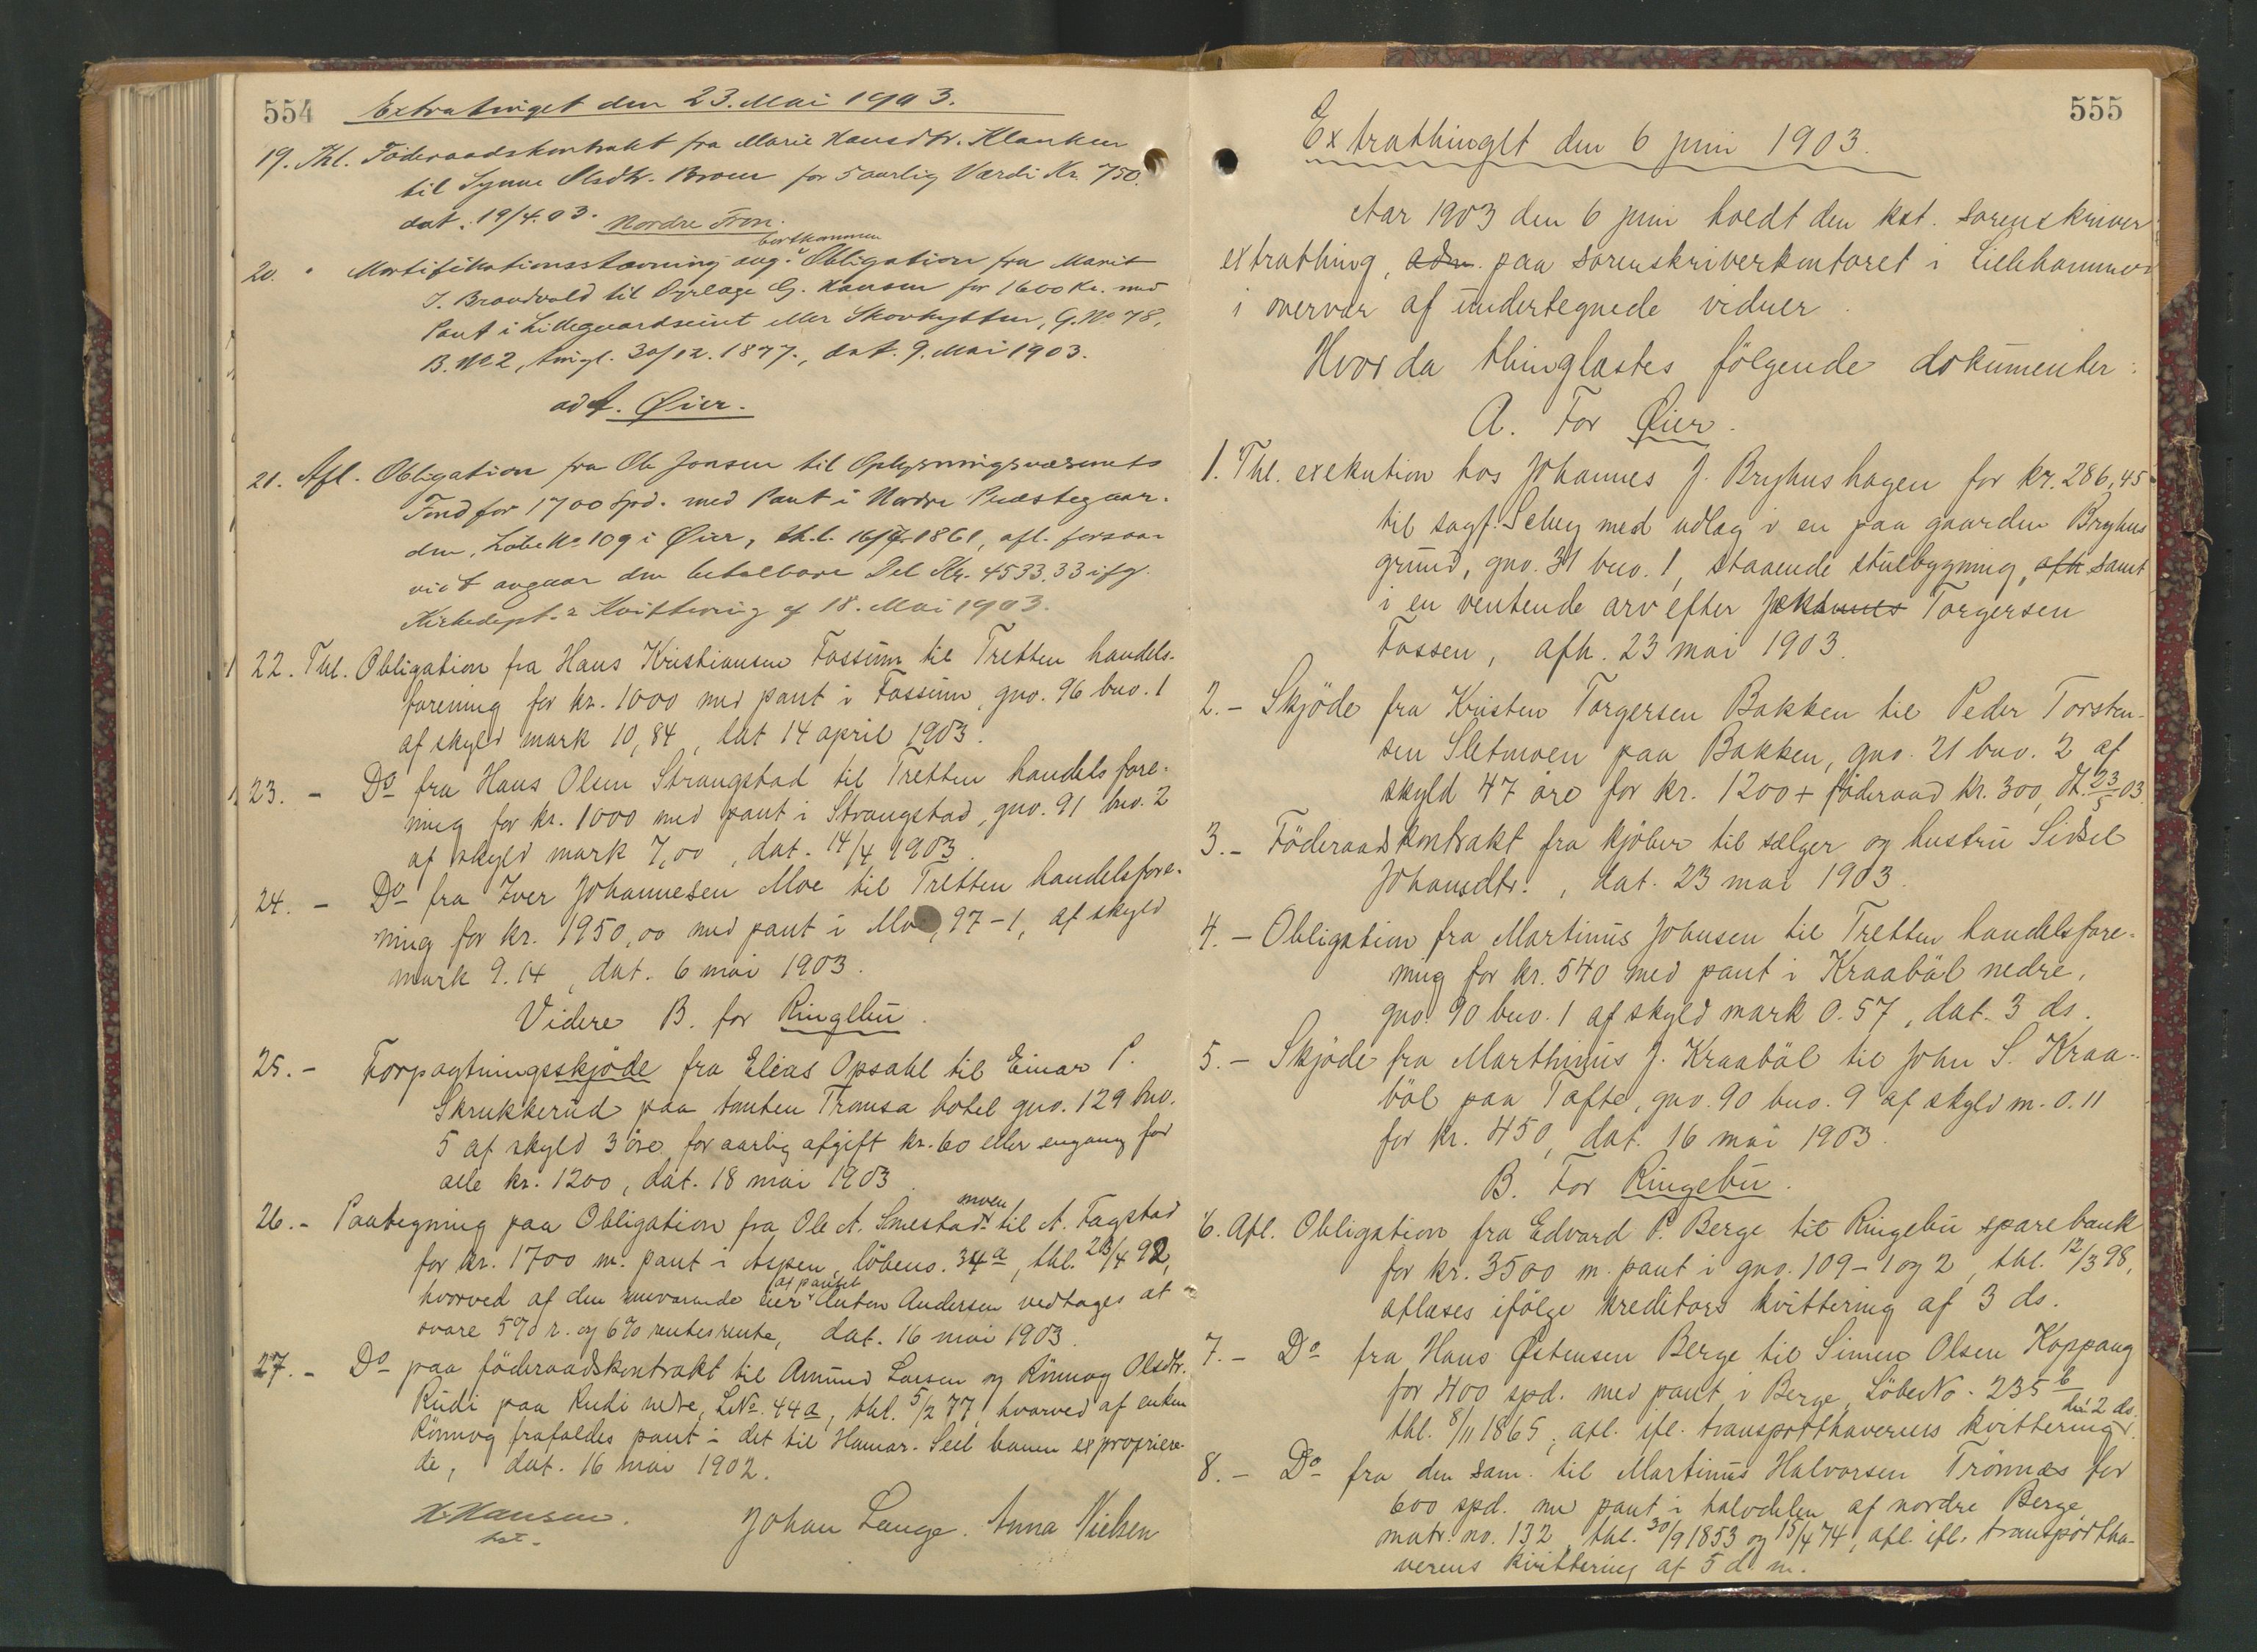 554
Extratinget den 23. Mai 1903.
19. Thl. Föderaadskontrakt fra Marie Hansdtr. Klanken
til Synne Olsdtr. Broen for 5 aarlig Værdi Kr. 750.
dat. 19/4.03. Nordre Fron.
bortkommen
20. " Mortifikationsstævning ang. Obligation fra Marit
J. Brandvold til Dyrlæge G. Hansen for 1600 Kr. med
Pant i Lillegaardseiet eller Skovhytten, G. No 78,
B. No 2, tingl. 30/12. 1877., dat. 9. Mai 1903.
ad A. Øier.
21. Afl. Obligation fra Ole Jonsen til Oplysningsvæsenets
Fond for 1700 Spd. med Pant i Nordre Præstegaar-
den, Löbe No 109 i Øier, th.l. 1861, afl. forsaa-
vidt angaar den betalbare Del Kr. 4533,33 ifg.
Kirkedept.s Kvittering af 18. Mai 1903.
22. Thl. Obligation fra Hans Kristiansen Fossum til Tretten handels-
forening for kr. 1000 med pant i Fossum, gno. 96 bno. 1
af skyld mark 10,84, dat 14 april 1903.
23. - Do fra Hans Olsen Strangstad til Tretten handelsfore-
ning for kr. 1000 med pant i Strangstad, gno. 91 bno. 2
af skyld mark 7,00, dat. 14/4 1903.
24. - Do fra Iver Johannesen Moe til Tretten handelsfore-
ning for kr. 1950,00 med pant i Mo, 97-1, af skyld
mark 9.14, dat. 6 mai 1903.
Videre B. for Ringebu.
25. - Forpagtningsskjöde fra Elias Opsahl til Einar P.
Skrukkerud paa tomten Tromsa hotel gno. 129 bno.
5 af skyld 3 öre for aarlig afgift kr. 60 eller engang for
alle kr. 1200, dat. 18 mai 1903.
moen
26. - Paategning paa Obligation fra Ole A. Smestad til A. Fagstad
for kr. 1700 m. pant i Aspen, löbeno. 34a, thl. 26/4 92,
af pantet
hvorved af den nuværende eier Anton Andersen vedtages at
svare 5% r. og 6% rentesrente, dat. 16 mai 1903.
27. - Do paa föderaadskontrakt til Amund Larsen og Rönnog Olsdtr.
Rudi paa Rudi nedre, LNo. 44a, thl. 5/2 77, hvorved af enken
Rönnog frafaldes pant i det til Hamar-Sell banen expropriere-
de, dat. 16 mai 1902.
H. Hansen. Johan Lange. Anna Nielsen
kst.
555
Extrathinget den 6 juni 1903.
Aar 1903 den 6 juni holdt den kst. sorenskriver
extrathing, adm. paa sorenskriverkontoret i Lillehammer
i overvær af undertegnede vidner.
Hvor da thinglæstes fölgende dokumenter:
A. For Øier.
1. Thl. exekution hos Johannes J. Bryhnshagen for kr. 286,45
til sagf. Schey med udlæg i en paa gaarden Bryhns
grund, gno. 31 bno. 1, staaende stuebygning, afh samt
i en ventende arv efter Torgersen
Fossen, afh. 23 mai 1903.
2. - Skjöde fra Kristen Torgersen Bakken til Peder Torsten-
sen Sletmoen paa Bakken, gno. 21 bno. 2 af
skyld 47 öre for kr. 1200 + föderaad kr. 300, dt. 23/5 03.
3. - Föderaadskontrakt fra kjöber til sælger og hustru Sidsel
Johansdtr., dat. 23 mai 1903.
4. - Obligation fra Martinus Johnsen til Tretten handelsfore-
ning for kr. 540 med pant i Kraaböl nedre,
gno. 90 bno. 1 af skyld mark 0.57, dat. 3 ds.
5. - Skjöde fra Marthinus J. Kraaböl til John S. Kraa-
böl paa Tofte, gno. 90 bno. 9 af skyld m. 0.11
for kr. 450, dat. 16 mai 1903.
B. For Ringebu.
6. Afl. Obligation fra Edvard P. Berge til Ringebu sparebank
for kr. 3500 m. pant i gno. 109-1 og 2, thl. 12/3 98,
aflæses ifölge kreditors kvittering af 3 ds.
7. - Do fra Hans Østensen Berge til Simen Olsen Koppang
for 400 spd. med pant i Berge, LöbeNo. 235 b
thl. 8/11 1865, afl. ifl. transporthaverens kvittering
2 ds.
8. - Do fra den sam. til Martinus Halvorsen Trönnæs for
600 spd. med pant i halvdelen af nordre Berge
matr. no. 132, thl. 30/9 1853 og 15/4 74, afl. ifl. transportha-
verens kvittering af 5 d. m.